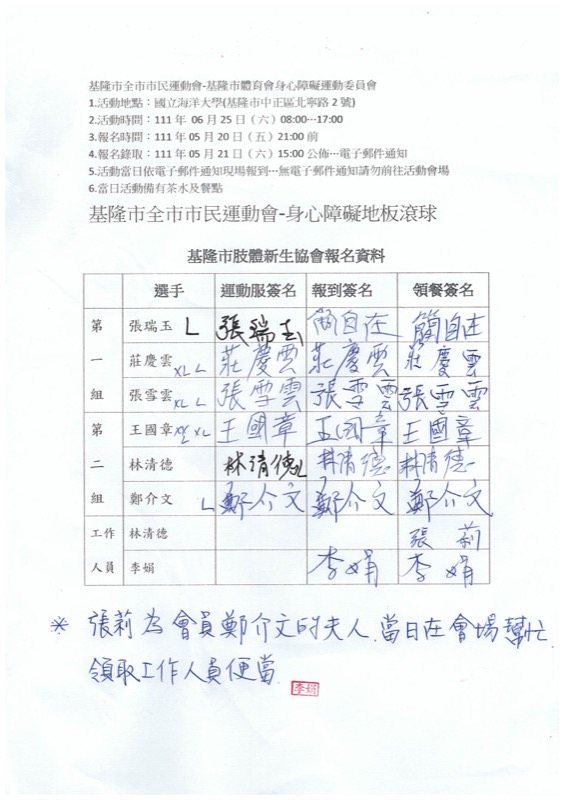 基隆市全市市民運動會-基隆市體育會身心障礙運動委員會
1.活動地點：國立海洋大學(基隆市中正區北寧路 2 號)
2.活動時間：111 年 06 月 25 日（六）08:00⋯17:00
3.報名時間：111 年 05 月 20 日（五）21:00 前
4.報名錄取：111 年 05 月 21 日（六）15:00 公佈⋯電子郵件通知
5.活動當日依電子郵件通知現場報到⋯無電子郵件通知請勿前往活動會場
6.當日活動備有茶水及餐點
基隆市全市市民運動會-身心障礙地板滾球
基隆市肢體新生協會報名資料
選手 運動服簽名 報到簽名 領餐簽名
第 張瑞玉 L 張瑞玉 簡自在 簡自在
一 莊慶雲 XL L 莊慶雲 莊慶雲 莊慶雲
組 張雪雲 XL L 張雪雲 張雪雲 張雪雲
第 王國章 XL 王國章 王國章 王國章
二 林清德 林清德 L 林清德 林清德
組 鄭介文 L 鄭介文 鄭介文 鄭介文
工作 林清德 張莉
人員 李娟 李娟 李娟
* 張莉為會員鄭介文的夫人.當日在會場幫忙
領取工作人員便當.
李娟